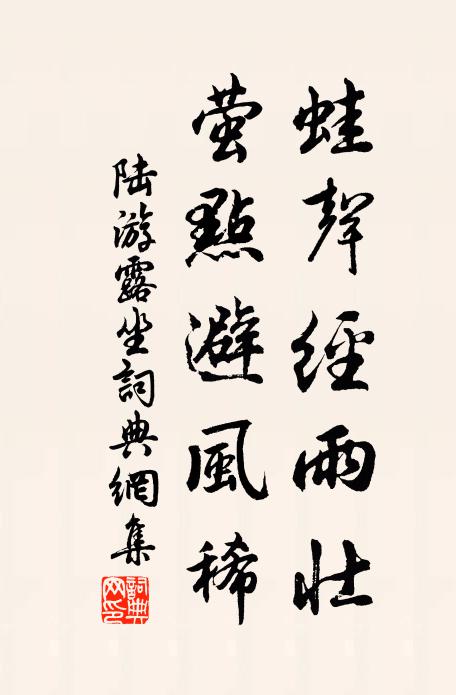 蛙聲經雨壯
螢點避風稀
陸游露坐詞典網集
詞典網印